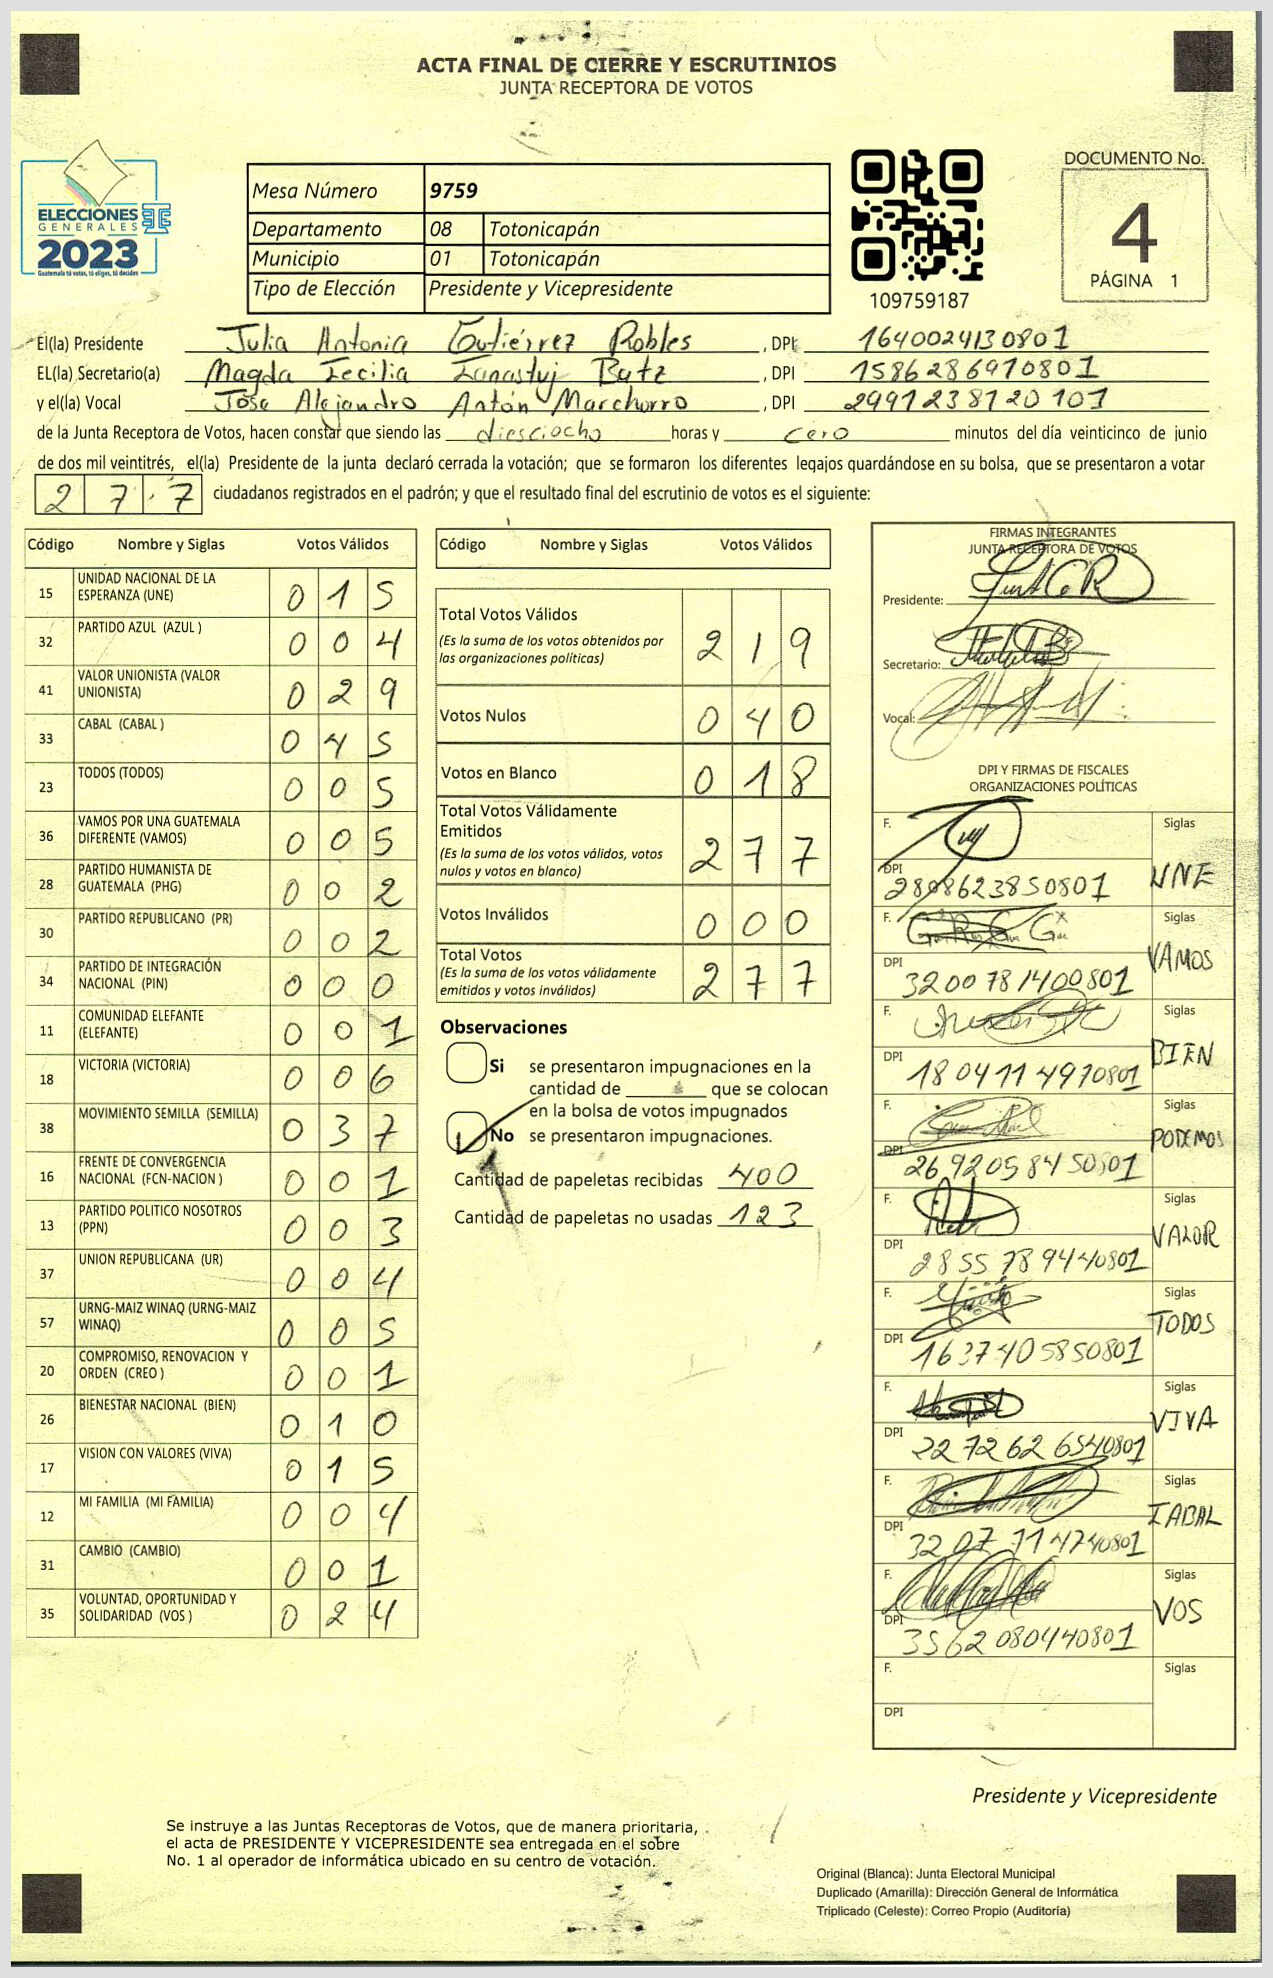 ACTA FINAL DE CIERRE Y ESCRUTINIOS
JUNTA RECEPTORA DE VOTOS
ELECCIONES
GENERALES
2023
Guatemala tú votas, tú eliges, tú decides
Mesa Número 9759
Departamento 08 Totonicapán
Municipio 01 Totonicapán
Tipo de Elección Presidente y Vicepresidente
109759187
DOCUMENTO No.
4
PÁGINA 1
El(la) Presidente Julia Antonia Gutiérrez Robles, DPI 1640024130801
EL(la) Secretario(a) Magda Cecilia Batz, DPI 1586286970801
y el(la) Vocal José Alejandro Antón Marchorro, DPI 2991238120101
de la Junta Receptora de Votos, hacen constar que siendo las diesciocho horas y cero minutos del día veinticinco de junio
de dos mil veintitrés, el(la) Presidente de la junta declaró cerrada la votación; que se formaron los diferentes legajos quardándose en su bolsa, que se presentaron a votar
277 ciudadanos registrados en el padrón; y que el resultado final del escrutinio de votos es el siguiente:
Código Nombre y Siglas Votos Válidos
15 UNIDAD NACIONAL DE LA ESPERANZA (UNE) 015
32 PARTIDO AZUL (AZUL ) 004
41 VALOR UNIONISTA (VALOR UNIONISTA) 029
33 CABAL (CABAL ) 045
23 TODOS (TODOS) 005
36 VAMOS POR UNA GUATEMALA DIFERENTE (VAMOS) 005
28 PARTIDO HUMANISTA DE GUATEMALA (PHG) 002
30 PARTIDO REPUBLICANO (PR) 002
34 PARTIDO DE INTEGRACIÓN NACIONAL (PIN) 000
11 COMUNIDAD ELEFANTE (ELEFANTE) 001
18 VICTORIA (VICTORIA) 006
38 MOVIMIENTO SEMILLA (SEMILLA) 037
16 FRENTE DE CONVERGENCIA NACIONAL (FCN-NACION ) 001
13 PARTIDO POLITICO NOSOTROS (PPN) 003
37 UNION REPUBLICANA (UR) 004
57 URNG-MAIZ WINAQ (URNG-MAIZ WINAQ) 005
20 COMPROMISO, RENOVACION Y ORDEN (CREO ) 001
26 BIENESTAR NACIONAL (BIEN) 010
17 VISION CON VALORES (VIVA) 015
12 MI FAMILIA (MI FAMILIA) 004
31 CAMBIO (CAMBIO) 001
35 VOLUNTAD, OPORTUNIDAD Y SOLIDARIDAD (VOS ) 024
Código Nombre y Siglas Votos Válidos
Total Votos Válidos 219
(Es la suma de los votos obtenidos por
las organizaciones políticas)
Votos Nulos 040
Votos en Blanco 018
Total Votos Válidamente
Emitidos 277
(Es la suma de los votos válidos, votos
nulos y votos en blanco)
Votos Inválidos 000
Total Votos 277
(Es la suma de los votos válidamente
emitidos y votos inválidos)
Observaciones
Si se presentaron impugnaciones en la
cantidad de que se colocan
en la bolsa de votos impugnados
No se presentaron impugnaciones.
Cantidad de papeletas recibidas 400
Cantidad de papeletas no usadas 123
FIRMAS INTEGRANTES
JUNTA RECEPTORA DE VOTOS
Presidente:
Secretario:
Vocal:
DPI Y FIRMAS DE FISCALES
ORGANIZACIONES POLÍTICAS
F. Siglas
DPI 2808623850801 UNE
F. Siglas
DPI 3200781400801 VAMOS
F. Siglas
DPI 1804114970801 BIEN
F. Siglas
DPI 2692058450801 PODEMOS
F. Siglas
DPI 2855789440801 VALOR
F. Siglas
DPI 1637405850801 TODOS
F. Siglas
DPI 2272626540801 VIVA
F. Siglas
DPI 3207114740801 CABAL
F. Siglas
DPI 3562080440801 VOS
F. Siglas
DPI
Presidente y Vicepresidente
Se instruye a las Juntas Receptoras de Votos, que de manera prioritaria,
el acta de PRESIDENTE Y VICEPRESIDENTE sea entregada en el sobre
No. 1 al operador de informática ubicado en su centro de votación.
Original (Blanca): Junta Electoral Municipal
Duplicado (Amarilla): Dirección General de Informática
Triplicado (Celeste): Correo Propio (Auditoría)